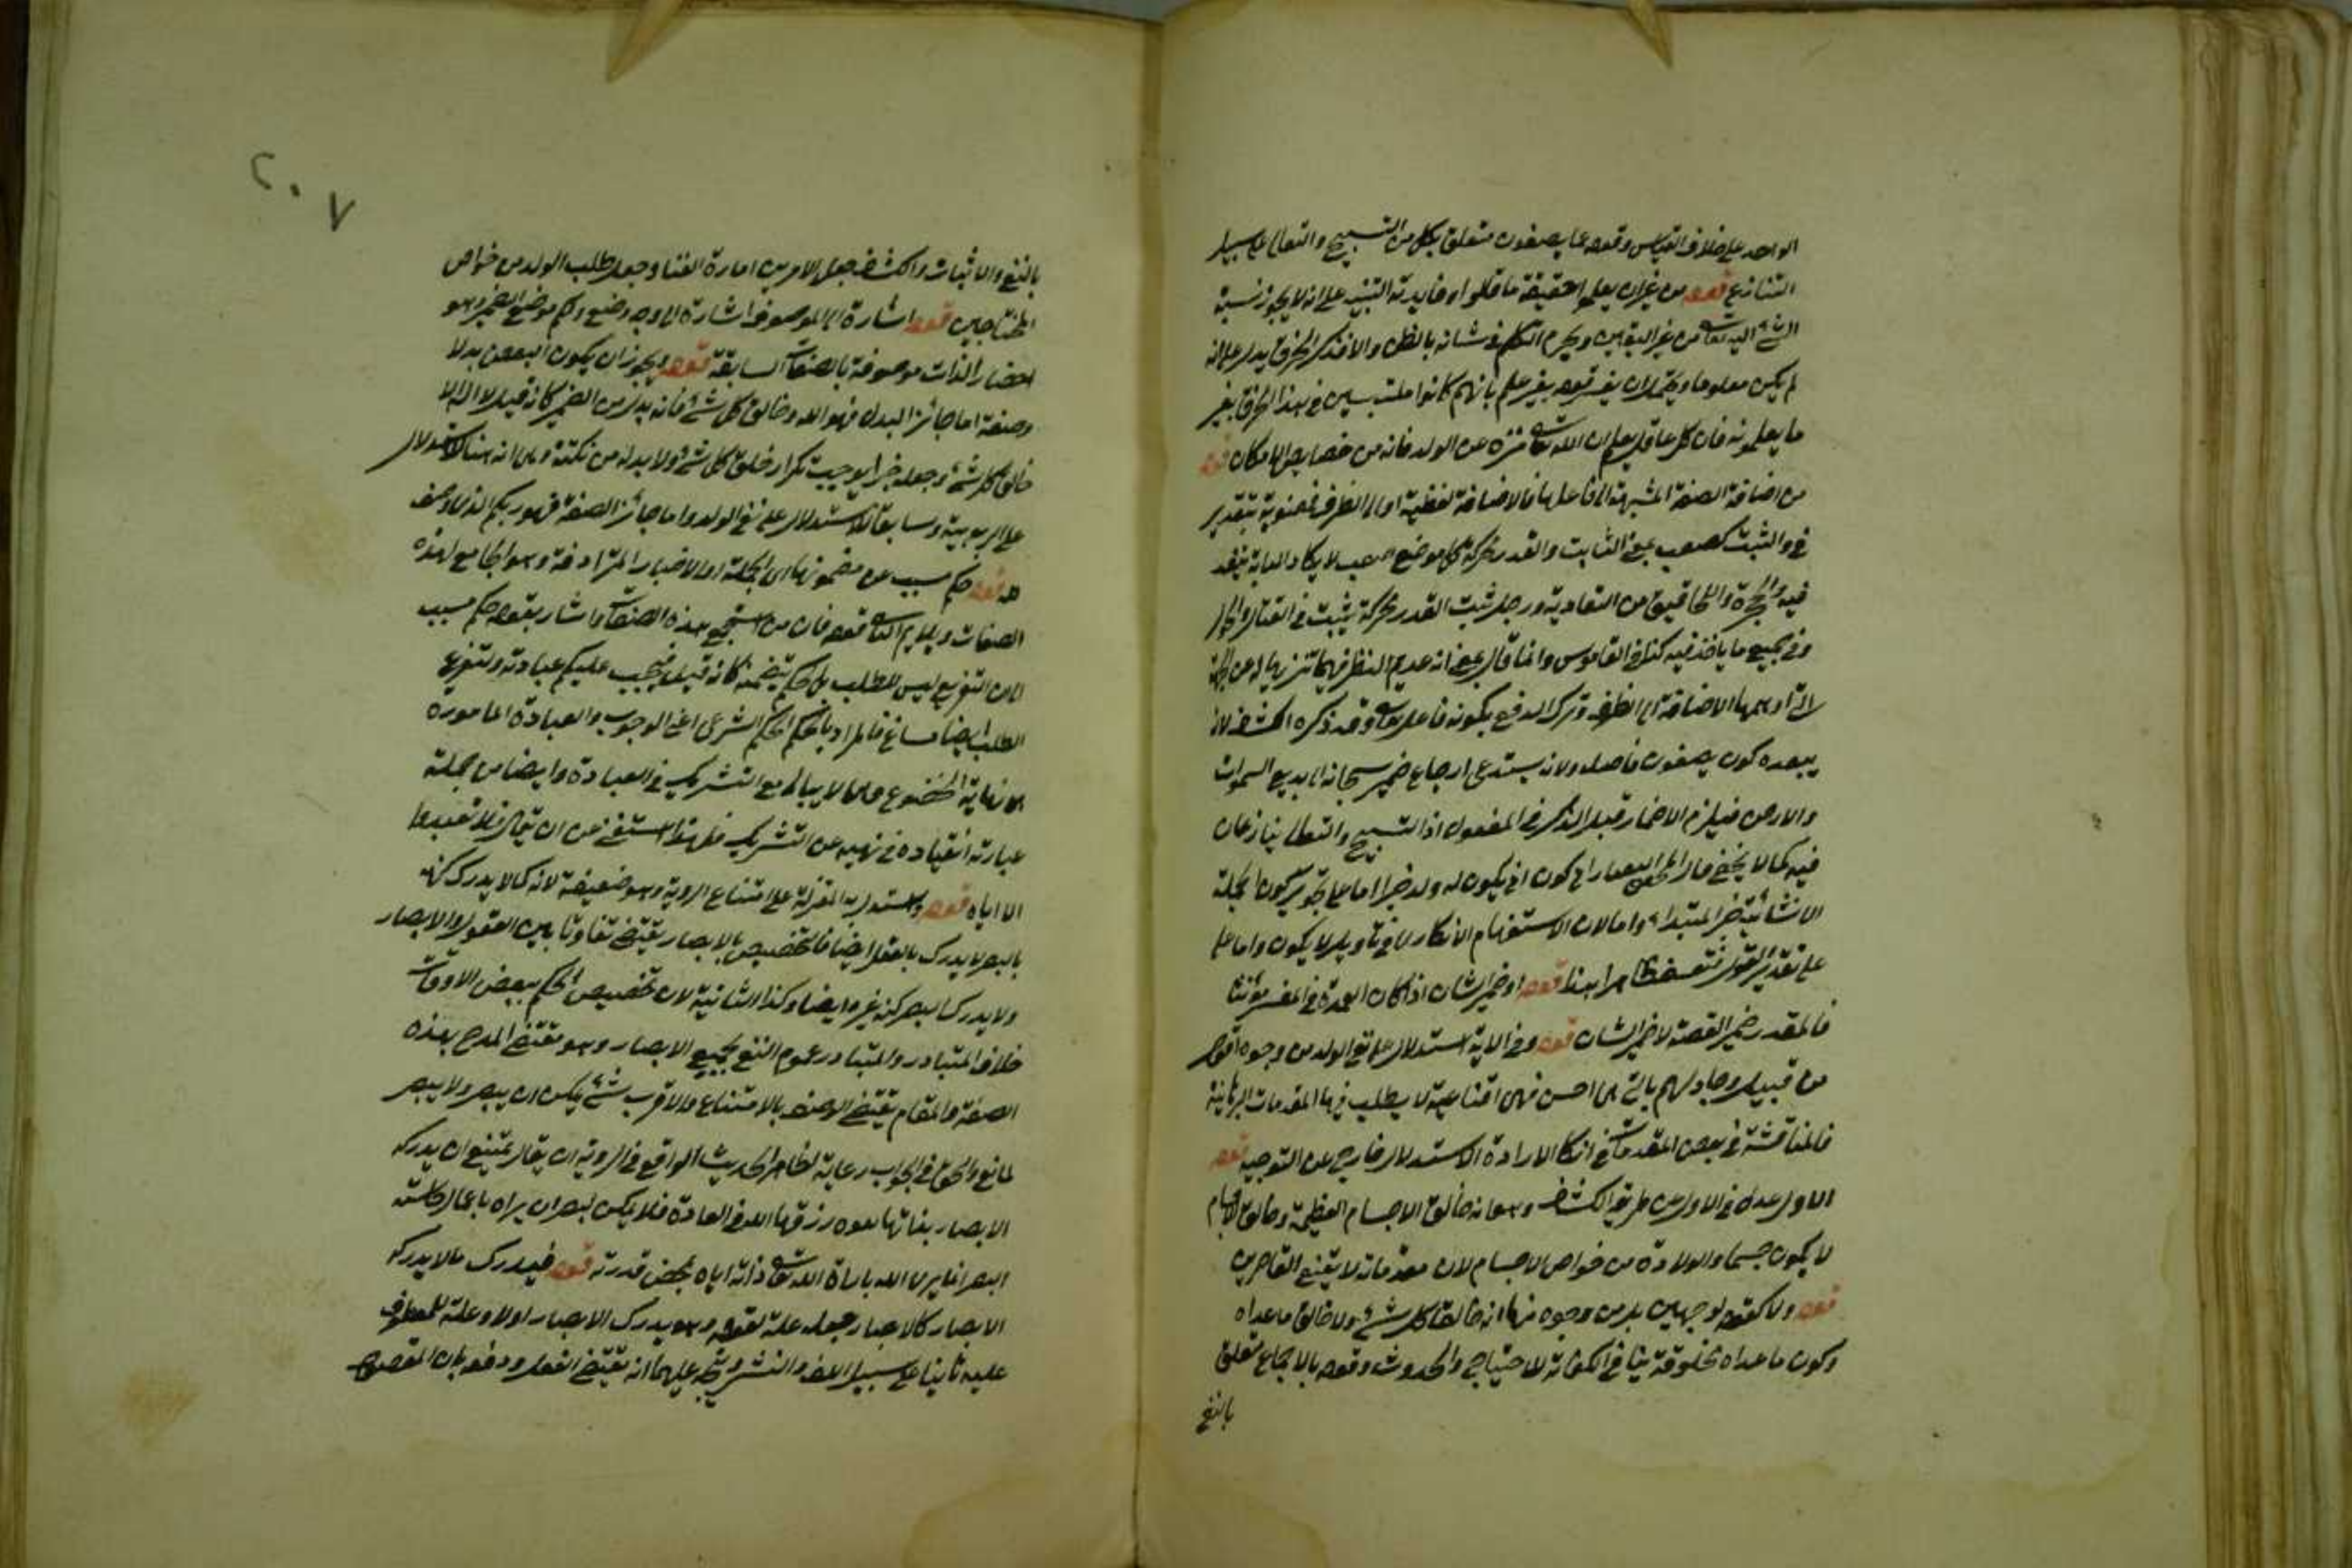 الواحد على خلاف القياس وقوله عما يصفون متعلق بكل من التسبيح والتعالى على سبيل
التنازع قوله من غير ان يعلموا حقيقة ما قالوا وفايدته التنبيه على انه لا يجوز نسبة
الشئ اليه تعالى من غير اليقين ويحرم التكلم في شانه بالظن والا فذكر الخرق يدل على انه
لم يكن معلوما ويحتمل ان يفسر قوله بغير علم بانهم كانوا ملتبسين في هذا الخرق بغير
ما يعلمونه فان كل عاقل يعلم ان الله تعالى منزه عن الولد فانه من خصايص الامكان قوله
من اضافة الصفة المشبهة الى فاعلها فالاضافة لفظية او الى الظرف فمعنوية بتقدير
في والثبت كصعب بمعنى الثابت والقدر محركة كل موضع صعب لا يكاد الدابة ينفذ
فيه والجحرة واللخاقيق من التعادية ورجل ثبت القدر محركة يثبت في القتال والجدل
وفي جميع ما ياخذ فيه كذا في القاموس وانما قال بمعنى انه عديم النظير فيهما تنزيها له عن
التي اوهمها الاضافة الى الظرف وترك الدفع بكونه فاعل تعالى وقد ذكره الكشاف لانه
يبعده كون يصفون فاصلة ولانه يستدعى ارجاع ضمير سبحانه الى بديع السموات
والارض فيلزم الاضمار قبل الذكر في المفعول اذا التسبيح والتعالى ينازعان
فيه كما لا يخفى قال الى كون انى يكون له ولد خبرا اما على تجويز كون الجملة
الانشائية خبر المبتداء واما لان الاستفهام الانكارى في تاويل لا يكون واما على
على تقدير القول هذا قوله او ضمير الشان اذا كان العمدة في المفسر مؤنثا
فالمقدر ضمير القصة لا ضمير الشان قوله وفي الاية استدلال على نفي الولد من وجوه اقول
من قبيل وجادلهم بالتى هى احسن فهى اقناعية لا يطلب فيها المقدمات البرهانية
فالمناقشة في بعض المقدمات في ان الارادة الاستدلال خارج عن التوجيه قوله
الاول عدل في الاول عن طريق الكشاف وهو انه خالق الاجسام العظيمة وخالق الاجسام
لا يكون جسما والولادة من خواص الاجسام لان مقدماته لا يقنع القاصرين
قوله ولا كفو له لوجهين بل من وجوه منها انه خالق كل شئ ولا خالق ما عداه
وكون ما عداه مخلوقة ينافي الكفائة للاحتياج والحدوث وقوله بالاجماع تعلق
بالنفي
٢٠٧
بالنفي والاثبات والكشاف جعل الامرين امارة الغنا وجعل طلب الولد من خواص
المحتاجين قوله اشارة الى الموصوف اشارة الى وجه وضع ذلكم موضع الضمير وهو
احضار الذات موصوفة بالصفات السابقة قوله ويجوز ان يكون البعض بدلا
وصفة اما جائز البدل فهو الله وخالق كل شئ فانه بدل من الضمير كانه قيل لا اله الا
خالق كل شئ وجعله خبرا يوجب تكرار خلق كل شئ ولا بد له من نكتة وهى انه هنا للاستدلال
على الربوبية وسابقا للاستدلال على نفي الولد واما جائز الصفة فهو ربكم الذى وصف
له قوله حكم مسبب عن مضمونها اى الجملة او الاخبار المترادفة وهو الجامع لهذه
الصفات ويلايم الثانى قوله فان من استجمع هذه الصفات واشار بقوله حكم مسبب
الى ان التفريع ليس للطلب بل حكم يتضمنه كانه قيل فيجب عليكم عبادته وتفريع
الطلب ايضا مساغ فالمراد بالحكم الحكم الشرعى اعنى الوجوب والعبادة المامورة
بها نهاية الخضوع وهى لا يبالى مع التشريك في العبادة وايضا من جملة
عبادته انقياده في نهيه عن التشريك فلهذا استغنى عن ان يقال فلا تعبدوا
الا اياه قوله واستدل به المعتزلة على امتناع الروية وهو ضعيف لانه كما لا يدرك كنهه
بالبصر لا يدرك بالعقل ايضا فالتخصيص بالابصار يقتضى تفاوتا بين العقول والابصار
ولا يدرك البصر كنه غيره ايضا وكذا الثانية لان تخصيص الحكم ببعض الاوقات
خلاف المتبادر والمتبادر عموم النفي بجميع الابصار وهو مقتضى المدح بهذه
الصفة والمقام يقتضى الوصف بالامتناع والاقرب شئ يمكن ان يبصر ولا يبصر
لمانع والحق في الجواب رعاية لظاهر الحديث الواقع في الروية ان يقال يمتنع ان يدركه
الابصار بذاتها رزقها الله في العادة فلا يمكن لبصر ان يراه باعمال حاسته
البصر انما يرى الله باراة الله تعالى ذاته اياه بمحض قدرته قوله فيدرك مالا يدركه
الابصار كالابصار جعله علة لقوله وهو يدرك الابصار اولا وعلة للمعطوف
عليه ثانيا على سبيل اللف والنشر ويتجه عليهما انه يقتضى الفعل ودفعه بان المقصود